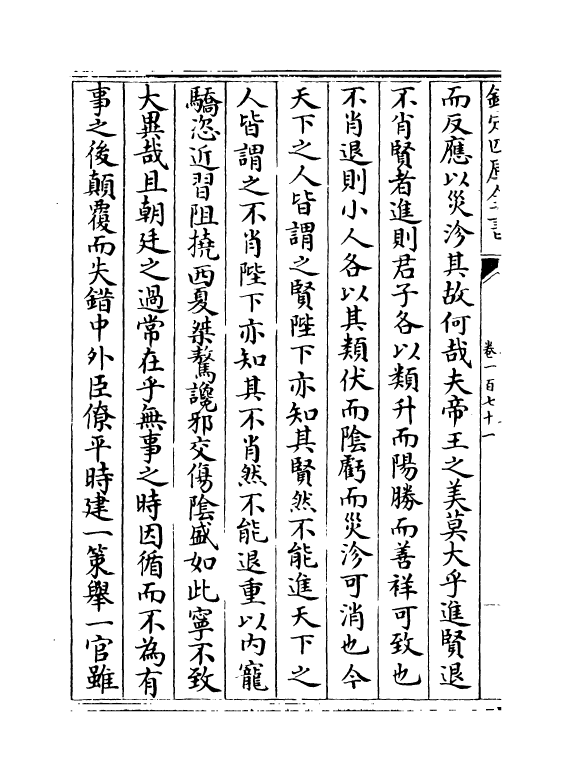 欽定四庫全書
卷一百七十一
而反應以災沴其故何哉夫帝王之美莫大乎進賢退
不肖賢者進則君子各以類升而陽勝而善祥可致也
不肖退則小人各以其類伏而陰虧而災沴可消也今
天下之人皆謂之賢陛下亦知其賢然不能進天下之
人皆謂之不肖陛下亦知其不肖然不能退重以內寵
驕恣近習阻撓西夏桀驁讒邪交傷陰盛如此寧不致
大異哉且朝廷之過常在乎無事之時因循而不為有
事之後顛覆而失錯中外臣僚平時建一策舉一官雖